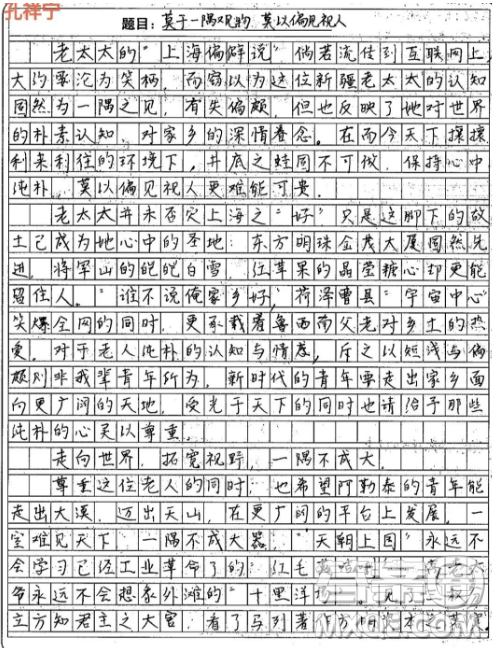 孔祥宁
题目：莫于一隅观的 莫以偏见视人
老太太的“上海偏僻说”倘若流传到互联网上，
大约要沦为笑柄，而窃以为这位新疆老太太的认知
固然为一隅之见，有失偏颇，但也反映了她对世界
的朴素认知，对家乡的深情眷念。在而今天下攘攘
利来利往的环境下，井底之蛙固不可伐，保持心中
纯朴，莫以偏见视人更难能可贵。
老太太并未否定上海之“好”只是这脚下的故
土已成为她心中的圣地：东方明珠金茂大厦固然先
进，将军山的皑皑白雪，红苹果的晶莹糖心却更能
留住人。“谁不说俺家乡好，”菏泽曹县“宇宙中心”
笑爆全网的同时，更承载着鲁西南父老对乡土的热
爱。对于老人纯朴的认知与情感，斥之以短浅与偏
颇则非我辈青年所为，新时代的青年要走出家乡面
向更广阔的天地，受光于天下的同时也请给予那些
纯朴的心灵以尊重。
走向世界，拓宽视野，一隅不成大。
尊重这位老人的同时，也希望阿勒泰的青年能
走出大漠，迈出天山，在更广阔的平台上发展。一
室难见天下，一隅不成大器，“天朝上国”永远不
会学习已经工业革命了的“红毛
爷永远不会想象外滩的“十里洋
立方知君主之大害；有了马列著作方明资本之